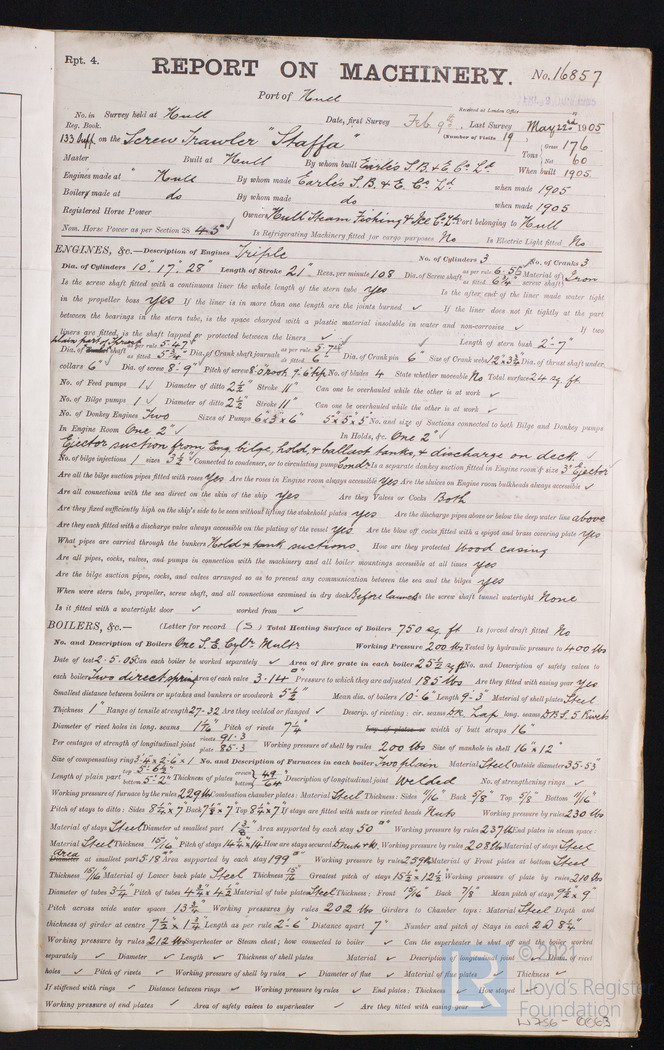 Rpt. 4.
REPORT ON MACHINERY. No. 16857
Port of Hull
Received at London Office
No. in Survey held at Hull Date, first Survey Feb. 9th Last Survey May 22nd 1905
Reg. Book. (Number of Visits 19
133 Supp. on the Screw Trawler "Staffa" Tons Gross 176 Net 60
Master Built at Hull By whom built Earle's S.B. & E. Co. Ld. When built 1905
Engines made at Hull By whom made Earle's S.B. & E. Co. Ld. when made 1905
Boilers made at do By whom made do when made 1905
Registered Horse Power Owners Hull Steam Fishing & Ice Co. Ld. Port belonging to Hull
Nom. Horse Power as per Section 28 45 Is Refrigerating Machinery fitted for cargo purposes No Is Electric Light fitted No
ENGINES, &c.—Description of Engines Triple No. of Cylinders 3 No. of Cranks 3
Dia. of Cylinders 10" 17" 28" Length of Stroke 21" Revs. per minute 108 Dia. of Screw shaft as per rule 6.55" as fitted 6 3/4" Material of screw shaft Iron
Is the screw shaft fitted with a continuous liner the whole length of the stern tube yes Is the after end of the liner made water tight
in the propeller boss yes If the liner is in more than one length are the joints burned ✓ If the liner does not fit tightly at the part
between the bearings in the stern tube, is the space charged with a plastic material insoluble in water and non-corrosive ✓ If two
liners are fitted, is the shaft lapped or protected between the liners ✓ Length of stern bush 2'-7"
plain part of thrust
Dia. of shaft as per rule 5.47" as fitted 5 3/4" Dia. of Crank shaft journals as per rule 5.75" as fitted 6" Dia. of Crank pin 6" Size of Crank webs 12"x3 3/4" Dia. of thrust shaft under
collars 6" Dia. of screw 8'-9" Pitch of screw 8'.0" root 9'.6" tip No. of blades 4 State whether moveable No Total surface 24 sq. ft.
No. of Feed pumps 1 Diameter of ditto 2 1/2" Stroke 11" Can one be overhauled while the other is at work ✓
No. of Bilge pumps 1 Diameter of ditto 2 1/2" Stroke 11" Can one be overhauled while the other is at work ✓
No. of Donkey Engines Two Sizes of Pumps 6"x3"x6" 5"x5"x5" No. and size of Suctions connected to both Bilge and Donkey pumps
In Engine Room One 2" In Holds, &c. One 2"
Ejector suction from Eng. bilge, hold, & ballast tanks, & discharge on deck
No. of bilge injections 1 sizes 3 1/2" Connected to condenser, or to circulating pump Condr Is a separate donkey suction fitted in Engine room & size 3" Ejector
Are all the bilge suction pipes fitted with roses Yes Are the roses in Engine room always accessible Yes Are the sluices on Engine room bulkheads always accessible ✓
Are all connections with the sea direct on the skin of the ship yes Are they Valves or Cocks Both
Are they fixed sufficiently high on the ship's side to be seen without lifting the stokehold plates yes Are the discharge pipes above or below the deep water line above
Are they each fitted with a discharge valve always accessible on the plating of the vessel yes Are the blow off cocks fitted with a spigot and brass covering plate yes
What pipes are carried through the bunkers Hold & tank suctions. How are they protected Wood casing
Are all pipes, cocks, valves, and pumps in connection with the machinery and all boiler mountings accessible at all times yes
Are the bilge suction pipes, cocks, and valves arranged so as to prevent any communication between the sea and the bilges yes
When were stern tube, propeller, screw shaft, and all connections examined in dry dock Before launch Is the screw shaft tunnel watertight None
Is it fitted with a watertight door ✓ worked from ✓
BOILERS, &c.— (Letter for record (S) Total Heating Surface of Boilers 750 sq. ft Is forced draft fitted No
No. and Description of Boilers One S.E. Cylr. Multr. Working Pressure 200 lbs Tested by hydraulic pressure to 400 lbs
Date of test 2.5.05 Can each boiler be worked separately ✓ Area of fire grate in each boiler 25 1/2 sq. ft. No. and Description of safety valves to
each boiler Two direct spring Area of each valve 3.14" Pressure to which they are adjusted 185 lbs Are they fitted with easing gear Yes
Smallest distance between boilers or uptakes and bunkers or woodwork 5 1/2" Mean dia. of boilers 10'-6" Length 9'-3" Material of shell plates Steel
Thickness 1" Range of tensile strength 27-32 Are they welded or flanged ✓ Descrip. of riveting: cir. seams DR Lap long. seams DBS 5 Rivets
Diameter of rivet holes in long. seams 1 1/16" Pitch of rivets 7 1/4" Lap of plates or width of butt straps 16"
Per centages of strength of longitudinal joint rivets 91.3 plate 85.3 Working pressure of shell by rules 200 lbs Size of manhole in shell 16"x12"
Size of compensating ring 3'-4"x2'-6"x1" No. and Description of Furnaces in each boiler Two plain Material Steel Outside diameter 35.53"
Length of plain part top 5'-6 1/2" bottom 5'-2" Thickness of plates crown bottom 49/64" Description of longitudinal joint Welded No. of strengthening rings ✓
Working pressure of furnace by the rules 229 lbs Combustion chamber plates: Material Steel Thickness: Sides 11/16" Back 5/8" Top 5/8" Bottom 11/16"
Pitch of stays to ditto: Sides 8 1/4"x7 Back 7 1/2"x7" Top 8 1/4"x7" If stays are fitted with nuts or riveted heads Nuts Working pressure by rules 230 lbs
Material of stays Steel Diameter at smallest part 1 3/8" Area supported by each stay 50" Working pressure by rules 237 lbs End plates in steam space:
Material Steel Thickness 15/16" Pitch of stays 14 1/4"x14" How are stays secured D nuts & W. Working pressure by rules 208 lbs Material of stays Steel
Area at smallest part 5.18" Area supported by each stay 199" Working pressure by rules 259 lbs Material of Front plates at bottom Steel
Thickness 15/16" Material of Lower back plate Steel Thickness 15/16" Greatest pitch of stays 15 1/2"x12 1/2" Working pressure of plate by rules 210 lbs
Diameter of tubes 3 1/4" Pitch of tubes 4 3/8"x4 1/2" Material of tube plates Steel Thickness: Front 15/16" Back 7/8" Mean pitch of stays 9 1/2"x9"
Pitch across wide water spaces 13 3/4" Working pressures by rules 202 lbs Girders to Chamber tops: Material Steel Depth and
thickness of girder at centre 7 1/2"x1 3/4" Length as per rule 2'-6" Distance apart 7" Number and pitch of Stays in each 2 @ 8 1/4"
Working pressure by rules 212 lbs Superheater or Steam chest; how connected to boiler ✓ Can the superheater be shut off and the boiler worked
separately ✓ Diameter ✓ Length ✓ Thickness of shell plates Material ✓ Description of longitudinal joint ✓ Diam. of rivet
holes ✓ Pitch of rivets ✓ Working pressure of shell by rules ✓ Diameter of flue ✓ Material of flue plates ✓ Thickness ✓
If stiffened with rings ✓ Distance between rings ✓ Working pressure by rules ✓ End plates: Thickness ✓ How stayed ✓
Working pressure of end plates ✓ Area of safety valves to superheater ✓ Are they fitted with easing gear ✓
© 2021
Lloyd's Register
Foundation
LR
W756-0063